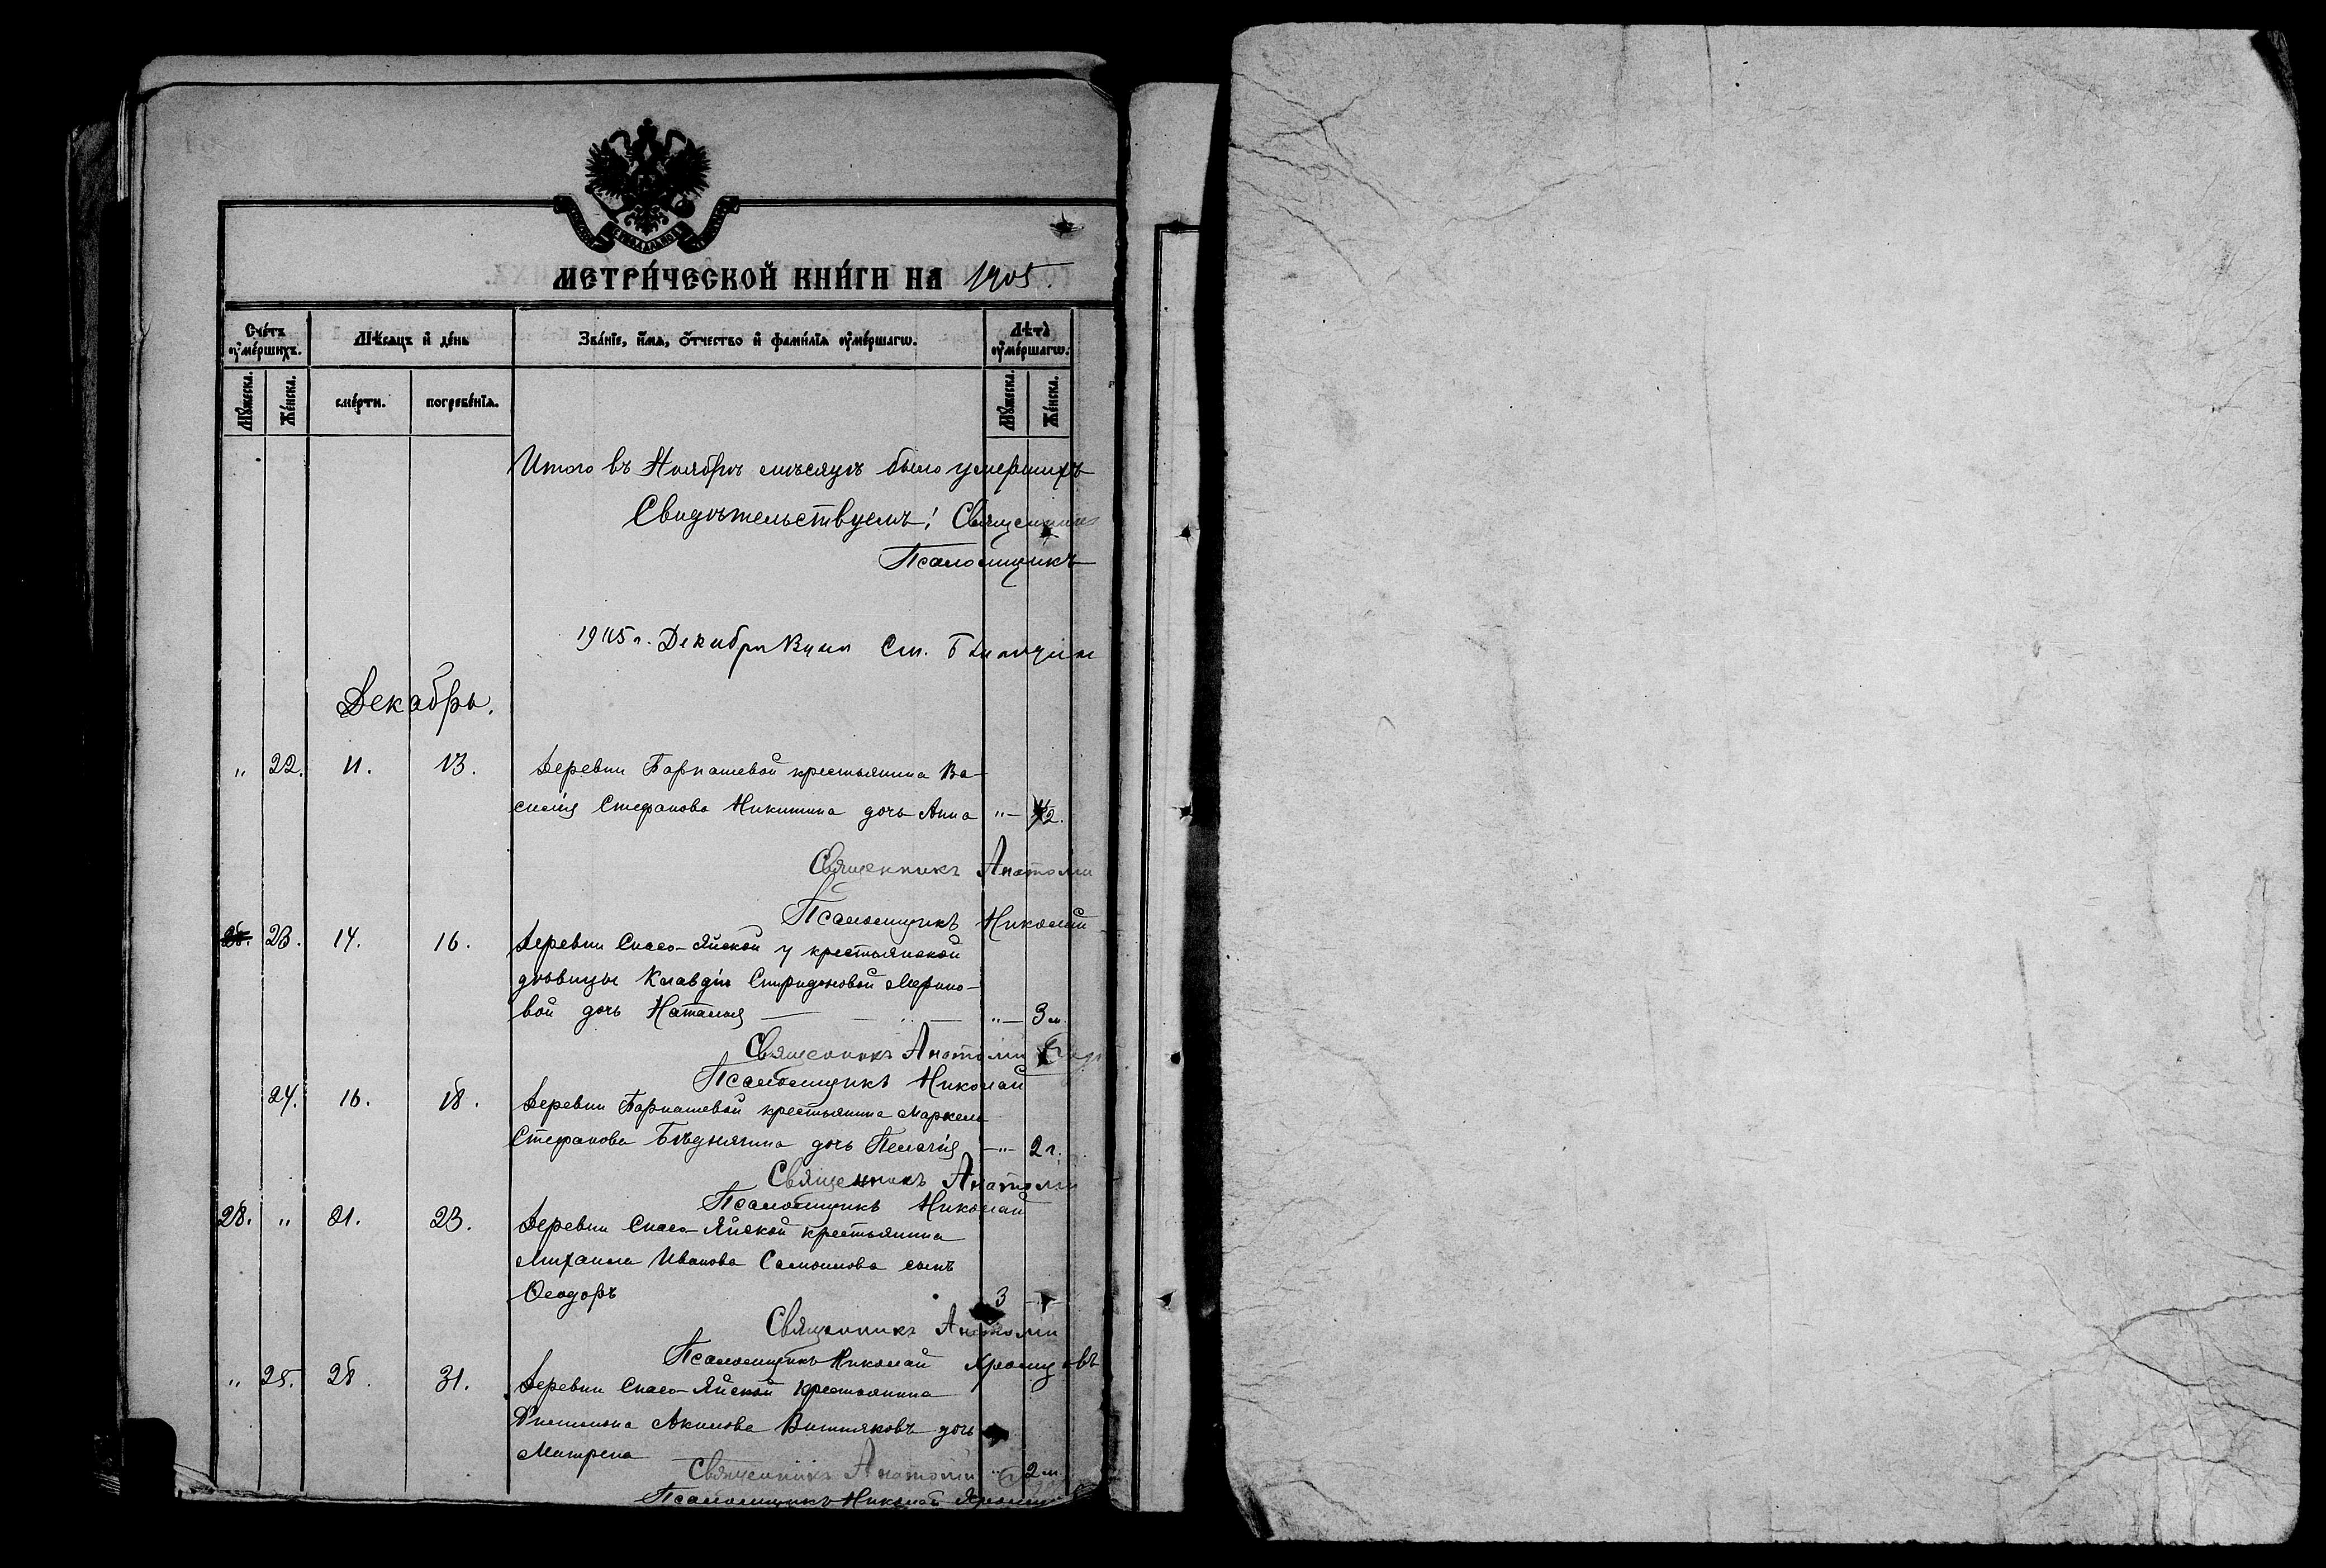 МЕТРИ́ЧЕСКОЙ КНИ́ГИ НА 1905.
Сче́тъ оумéршихъ.
Мѣсяцъ и де́нь
Зва́нїе, и́мя, о́тчество и фами́лїя оумéршагѡ.
Лѣта̀ оумéршагѡ.
Мꙋ́жеска.
Же́нска.
сме́рти.
погребе́нїя.
Мꙋ́жеска.
Же́нска.
Итого въ Ноябрѣ мѣсяцѣ было умершихъ
Свидѣтельствуемъ: Священникъ
Псаломщикъ
1905 г. Декабря
Декабрь.
" 22. 11. 13. Деревни Барнашевой крестьянина Ва-
силія Стефанова Никитина дочь Анна "
Священникъ Анатолій
Псаломщикъ Николай
23. 14. 16. Деревни Спасо-Яйской у крестьянской
дѣвицы Клавдіи Спиридоновой Мерино-
вой дочь Наталья " 3 м.
Священникъ Анатолій
Псаломщикъ Николай
24. 16. 18. Деревни Барнашевой крестьянина Маркела
Стефанова Бѣднягина дочь Пелагія " 2 г.
Священникъ Анатолій
Псаломщикъ Николай
28. " 21. 23. Деревни Спасо-Яйской крестьянина
Михаила Иванова Самоилова сынъ
Ѳеодоръ 3
Священникъ Анатолій
Псаломщикъ Николай
" 25. 28. 31. Деревни Спасо-Яйской крестьянина
Акимова дочь
Матрена " 2 м.
Священникъ Анатолій
Псаломщикъ Николай